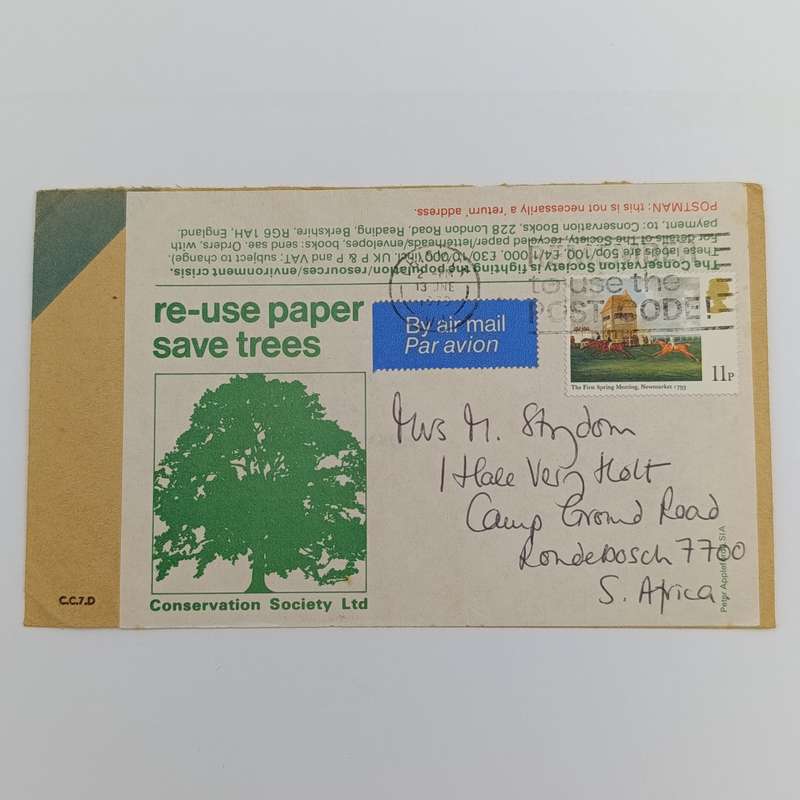 POSTMAN: this is not necessarily a 'return' address.
payment, to: Conservation Books, 228 London Road, Reading, Berkshire, RG6 1AH, England.
For details of The Society, recycled paper/letterheads/envelopes, books: send sae. Orders, with
These labels are 50p/100, £4/1,000, £30/10,000 (incl. UK P & P and VAT, subject to change).
The Conservation Society is fighting the population/resources/environment crisis.
13 JNE
to use the
POSTCODE!
re-use paper
save trees
By air mail
Par avion
The First Spring Meeting, Newmarket 1793
11P
Mrs M. Strydom
1 Hale Very Holt
Camp Ground Road
Rondebosch 7700
S. Africa
Conservation Society Ltd
C.C.7.D